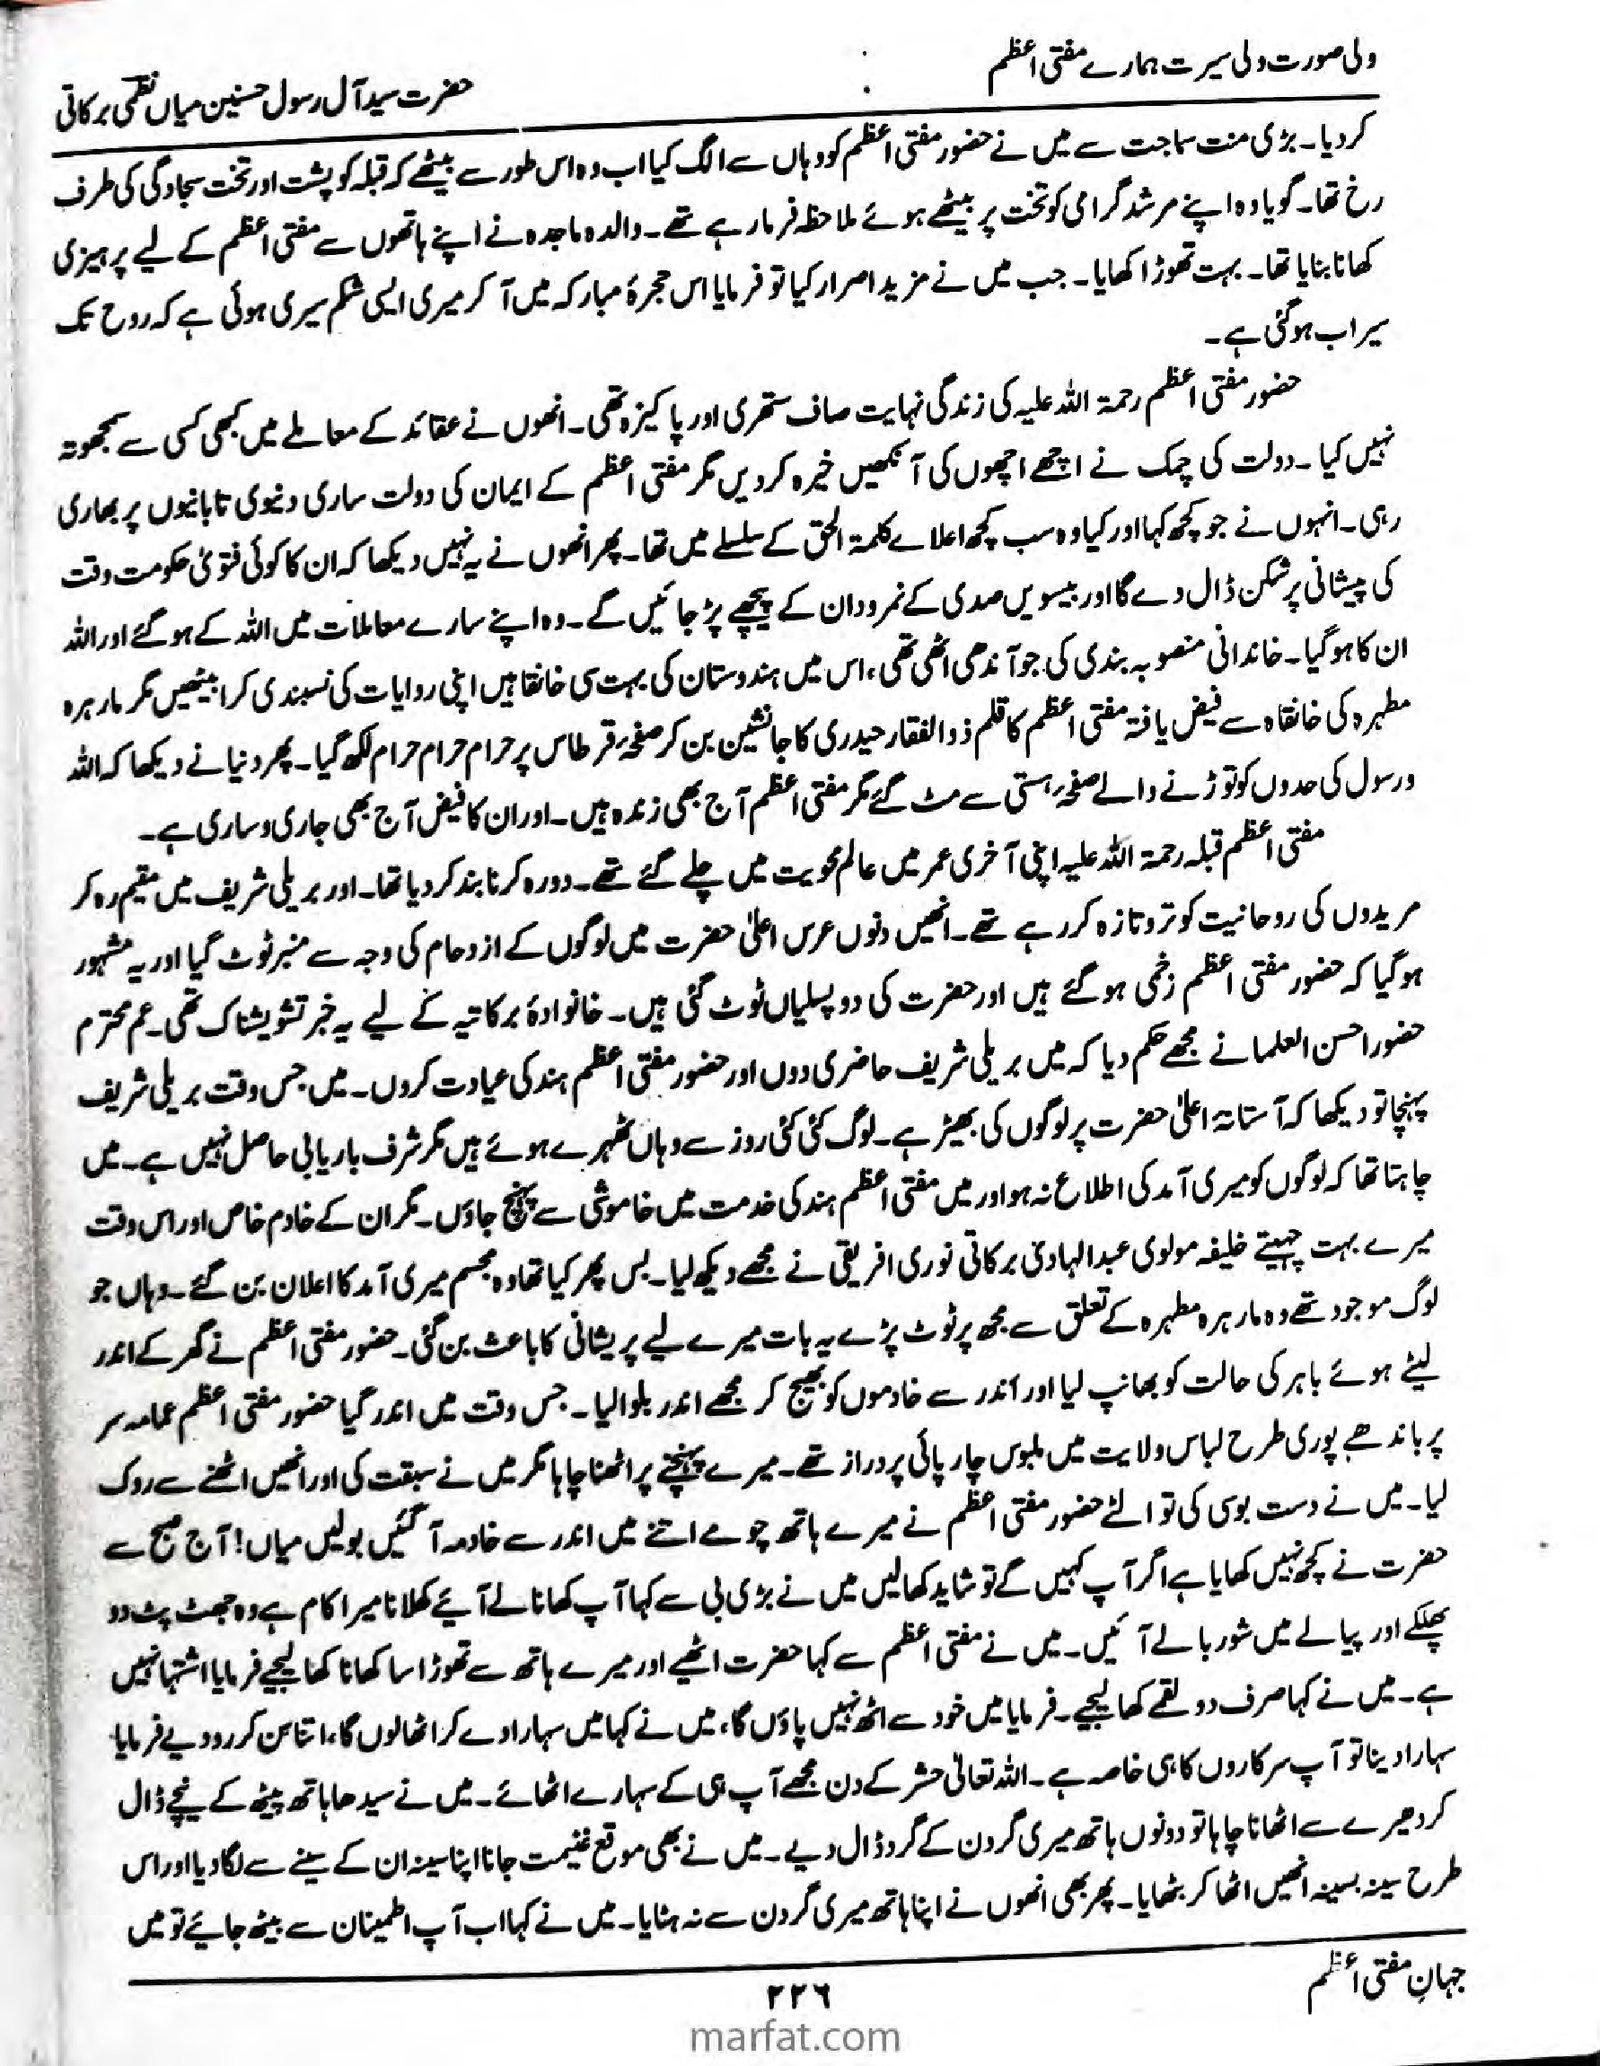 ولی صورت ولی سیرت ہمارے مفتی اعظم
حضرت سید آل رسول حسنین میاں نظمی برکاتی
کردیا۔ بڑی منت سماجت سے میں نے حضور مفتی اعظم کو وہاں سے الگ کیا اب وہ اس طور سے بیٹھے کہ قبلہ کو پشت اور تخت سجادگی کی طرف
رخ تھا۔ گویا وہ اپنے مرشد گرامی کو تخت پر بیٹھے ہوئے ملاحظہ فرما رہے تھے۔ والدہ ماجدہ نے اپنے ہاتھوں سے مفتی اعظم کے لیے پرہیزی
کھانا بنایا تھا۔ بہت تھوڑا کھایا۔ جب میں نے مزید اصرار کیا تو فرمایا اس حجرۂ مبارکہ میں آ کر میری ایسی شکم سیری ہوئی ہے کہ روح تک
سیراب ہوگئی ہے۔
حضور مفتی اعظم رحمۃ اللہ علیہ کی زندگی نہایت صاف ستھری اور پاکیزہ تھی۔ انھوں نے عقائد کے معاملے میں کبھی کسی سے سمجھوتہ
نہیں کیا۔ دولت کی چمک نے اچھے اچھوں کی آنکھیں خیرہ کردیں مگر مفتی اعظم کے ایمان کی دولت ساری دنیوی تابانیوں پر بھاری
رہی۔ انہوں نے جو کچھ کہا اور کیا وہ سب کچھ اعلاے کلمۃ الحق کے سلسلے میں تھا۔ پھر انھوں نے یہ نہیں دیکھا کہ ان کا کوئی فتویٰ حکومت وقت
کی پیشانی پر شکن ڈال دے گا اور بیسویں صدی کے نمرود ان کے پیچھے پڑ جائیں گے۔ وہ اپنے سارے معاملات میں اللہ کے ہوگئے اور اللہ
ان کا ہوگیا۔ خاندانی منصوبہ بندی کی جو آندھی اٹھی تھی، اس میں ہندوستان کی بہت سی خانقاہیں اپنی روایات کی نسبندی کرا بیٹھیں مگر مارہرہ
مطہرہ کی خانقاہ سے فیض یافتہ مفتی اعظم کا قلم ذوالفقار حیدری کا جانشین بن کر صفحۂ قرطاس پر حرام حرام حرام لکھ گیا۔ پھر دنیا نے دیکھا کہ اللہ
ورسول کی حدوں کو توڑنے والے صفحۂ ہستی سے مٹ گئے مگر مفتی اعظم آج بھی زندہ ہیں۔ اور ان کا فیض آج بھی جاری وساری ہے۔
مفتی اعظم قبلہ رحمۃ اللہ علیہ اپنی آخری عمر میں عالم محویت میں چلے گئے تھے۔ دورہ کرنا بند کردیا تھا۔ اور بریلی شریف میں مقیم رہ کر
مریدوں کی روحانیت کو تروتازہ کررہے تھے۔ انھیں دنوں عرس اعلیٰ حضرت میں لوگوں کے ازدحام کی وجہ سے منبر ٹوٹ گیا اور یہ مشہور
ہوگیا کہ حضور مفتی اعظم زخمی ہوگئے ہیں اور حضرت کی دو پسلیاں ٹوٹ گئی ہیں۔ خانوادۂ برکاتیہ کے لیے یہ خبر تشویشناک تھی۔ عم محترم
حضور احسن العلما نے مجھے حکم دیا کہ میں بریلی شریف حاضری دوں اور حضور مفتی اعظم ہند کی عیادت کروں۔ میں جس وقت بریلی شریف
پہنچا تو دیکھا کہ آستانۂ اعلیٰ حضرت پر لوگوں کی بھیڑ ہے۔ لوگ کئی کئی روز سے وہاں ٹھہرے ہوئے ہیں مگر شرف باریابی حاصل نہیں ہے۔ میں
چاہتا تھا کہ لوگوں کو میری آمد کی اطلاع نہ ہو اور میں مفتی اعظم ہند کی خدمت میں خاموشی سے پہنچ جاؤں۔ مگر ان کے خادم خاص اور اس وقت
میرے بہت چہیتے خلیفہ مولوی عبدالہادی برکاتی نوری افریقی نے مجھے دیکھ لیا۔ بس پھر کیا تھا وہ مجسم میری آمد کا اعلان بن گئے۔ وہاں جو
لوگ موجود تھے وہ مارہرہ مطہرہ کے تعلق سے مجھ پر ٹوٹ پڑے یہ بات میرے لیے پریشانی کا باعث بن گئی۔ حضور مفتی اعظم نے گھر کے اندر
لیٹے ہوئے باہر کی حالت کو بھانپ لیا اور اندر سے خادموں کو بھیج کر مجھے اندر بلوالیا۔ جس وقت میں اندر گیا حضور مفتی اعظم عمامہ سر
پر باندھے پوری طرح لباس ولایت میں ملبوس چارپائی پر دراز تھے۔ میرے پہنچنے پر اٹھنا چاہا مگر میں نے سبقت کی اور انھیں اٹھنے سے روک
لیا۔ میں نے دست بوسی کی تو الٹے حضور مفتی اعظم نے میرے ہاتھ چومے اتنے میں اندر سے خادمہ آگئیں بولیں میاں! آج صبح سے
حضرت نے کچھ نہیں کھایا ہے اگر آپ کہیں گے تو شاید کھالیں میں نے بڑی بی سے کہا آپ کھانا لے آیئے کھلانا میرا کام ہے وہ جھٹ پٹ دو
پھلکے اور پیالے میں شوربا لے آئیں۔ میں نے مفتی اعظم سے کہا حضرت اٹھیے اور میرے ہاتھ سے تھوڑا سا کھانا کھا لیجیے فرمایا اشتہا نہیں
ہے۔ میں نے کہا صرف دو لقمے کھا لیجیے۔ فرمایا میں خود سے اٹھ نہیں پاؤں گا، میں نے کہا میں سہارا دے کر اٹھا لوں گا، اتنا سن کر رو دیے فرمایا
سہارا دینا تو آپ سرکاروں کا ہی خاصہ ہے۔ اللہ تعالیٰ حشر کے دن مجھے آپ ہی کے سہارے اٹھائے۔ میں نے سیدھا ہاتھ پیٹھ کے نیچے ڈال
کر دھیرے سے اٹھانا چاہا تو دونوں ہاتھ میری گردن کے گرد ڈال دیے۔ میں نے بھی موقع غنیمت جانا اپنا سینہ ان کے سینے سے لگا دیا اور اس
طرح سینہ بسینہ انھیں اٹھا کر بٹھایا۔ پھر بھی انھوں نے اپنا ہاتھ میری گردن سے نہ ہٹایا۔ میں نے کہا اب آپ اطمینان سے بیٹھ جایئے تو میں
جہانِ مفتی اعظم
۲۲۶
marfat.com